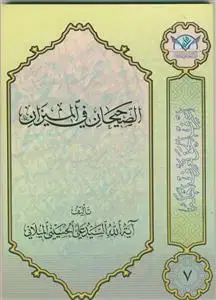 الصحيحان في الميزان
تأليف
آية الله السيد علي الحسيني الميلاني
٧